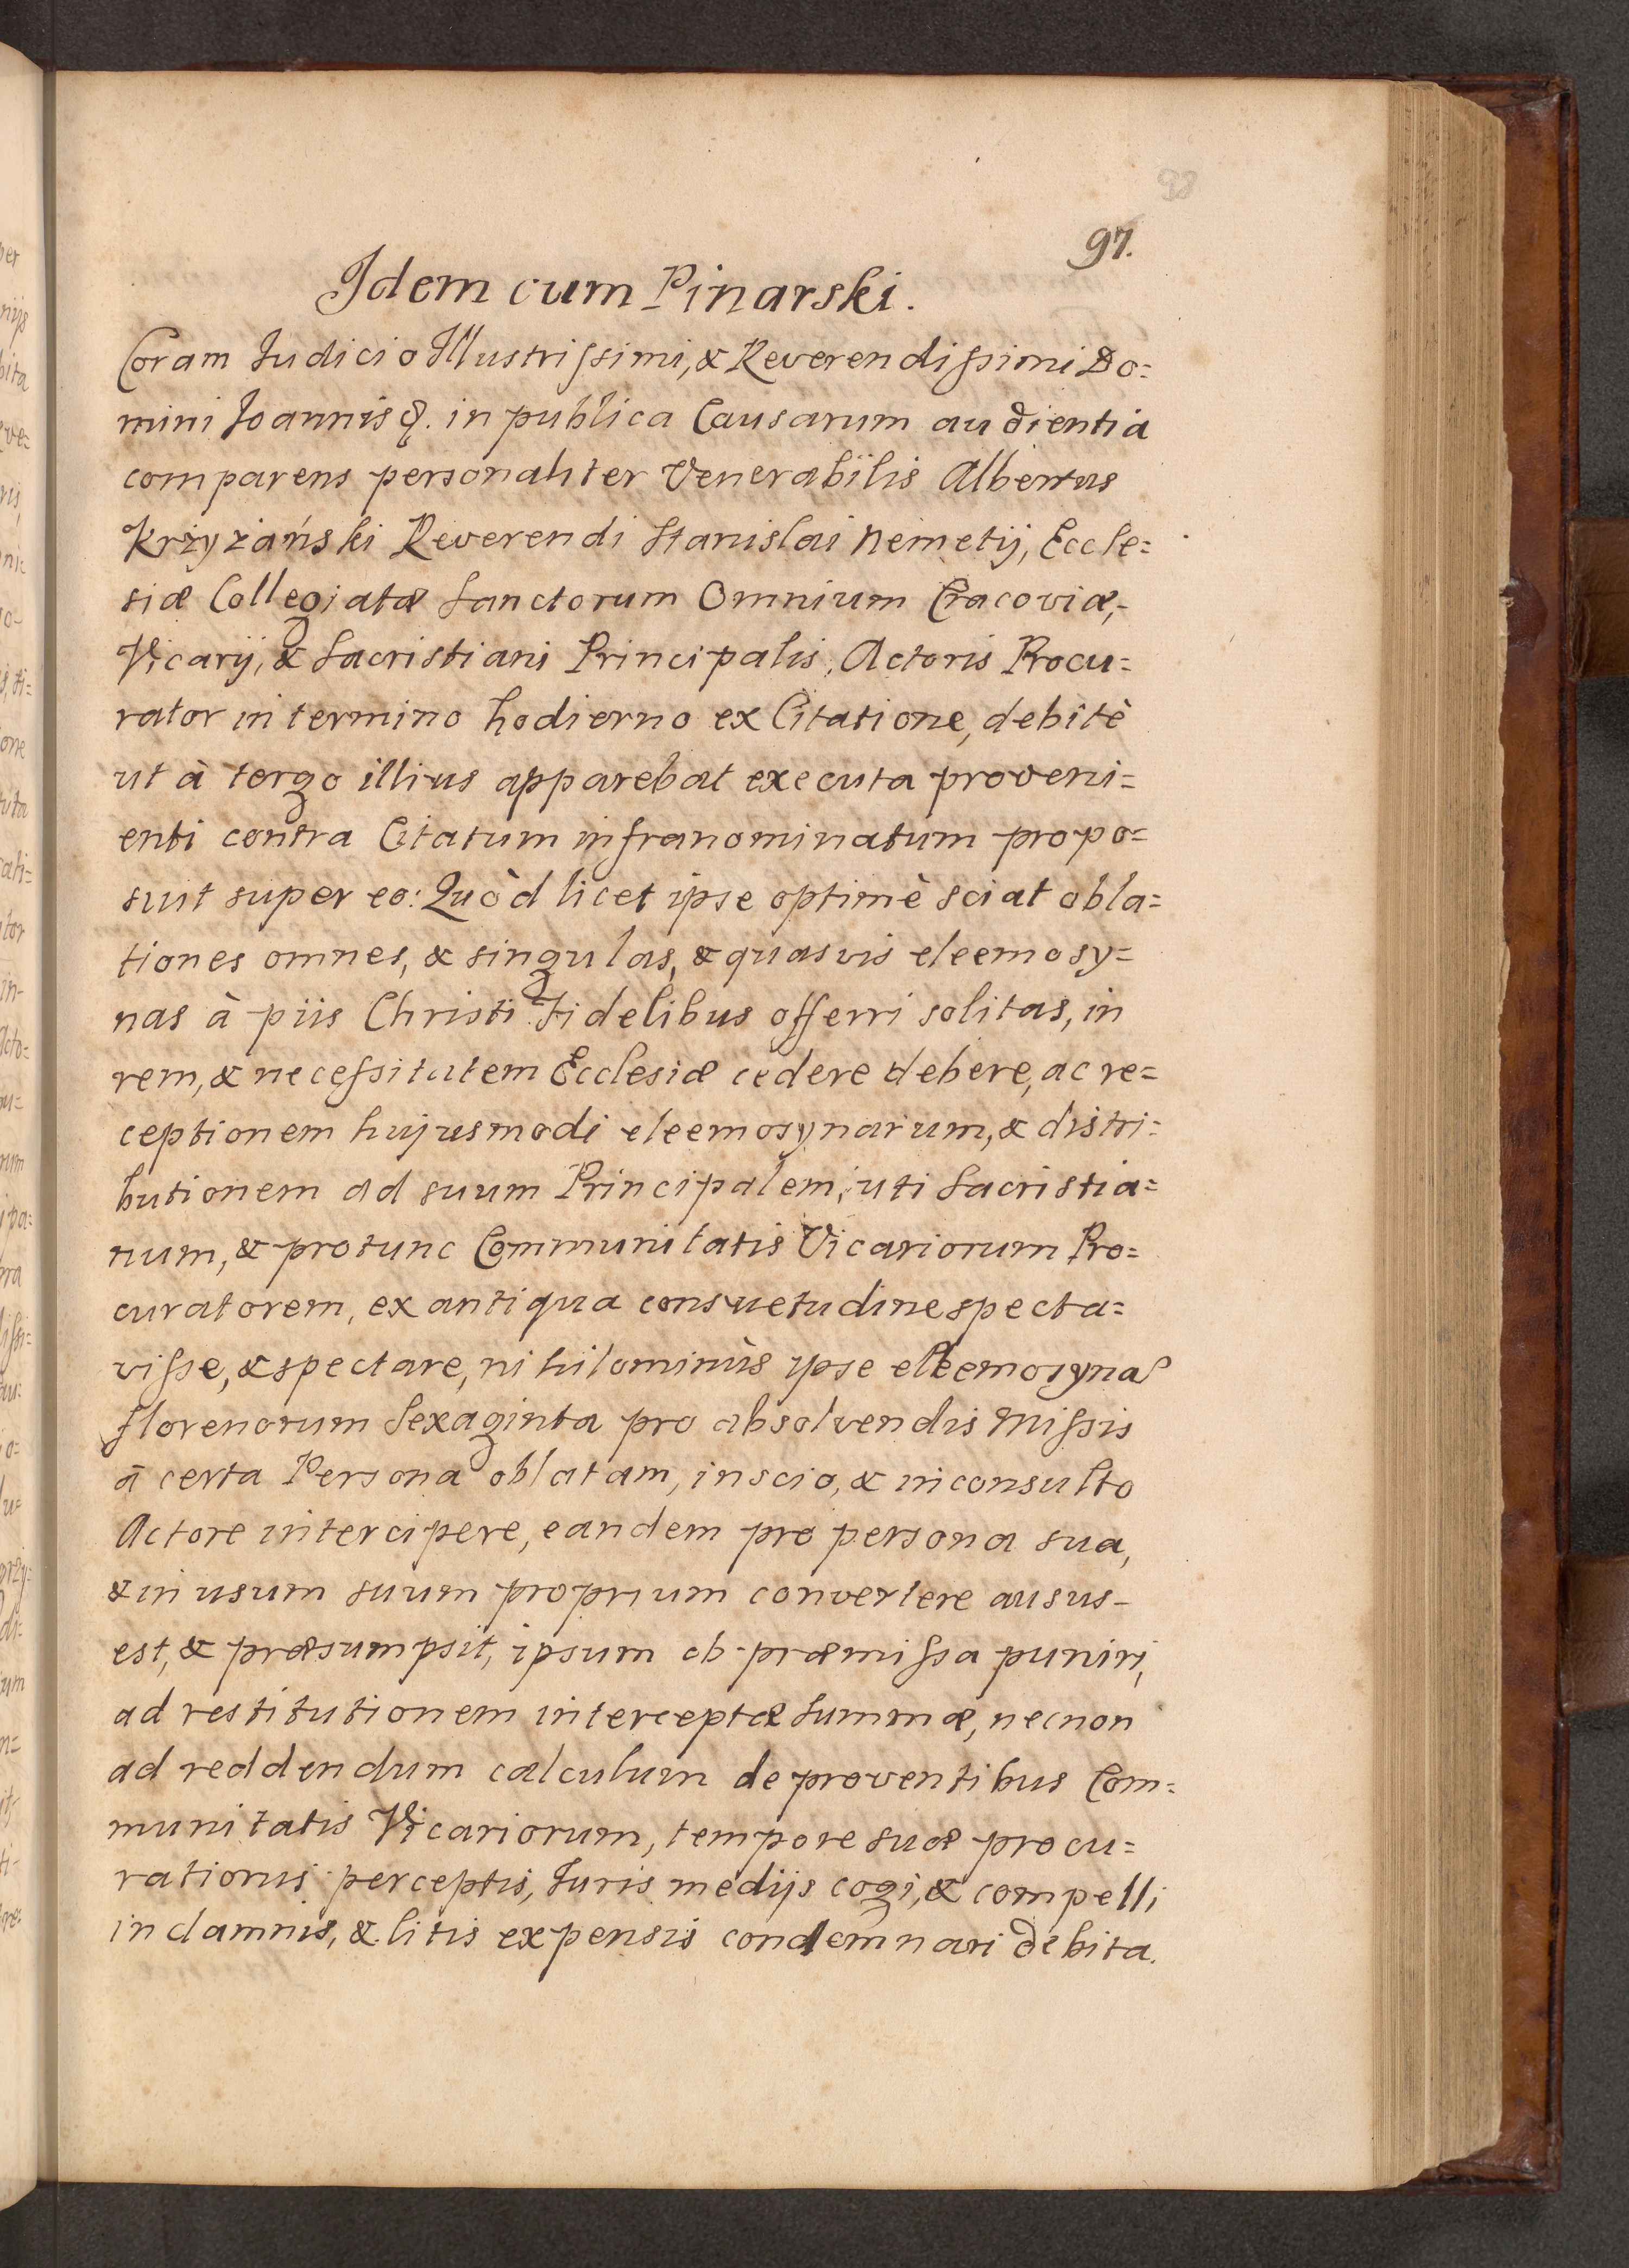 98
97.
Idem cum Pinarski.
Coram Judicio Illustrissimi, & Reverendissimi Do=
mini Joannis &. in publica Causarum audientia
comparens personaliter Venerabilis Albertus
Krzyżański Reverendi Stanislai Nemetij, Eccle=
siæ Collegiatæ Sanctorum Omnium Cracoviæ,-
Vicarij, & Sacristiani Principalis, Actoris Procu=
rator in termino hodierno ex Citatione, debitè
ut à tergo illius apparebat executa proveni=
enti contra Citatum infranominatum propo=
suit super eo: Quòd licet ipse optimè sciat obla=
tiones omnes, & singulas, & quasvis eleemosy=
nas à piis Christi Fidelibus offerri solitas, in
rem, & necessitatem Ecclesiæ cedere debere, ac re=
ceptionem hujusmodi eleemosynarum, & distri=
butionem ad suum Principalem, uti Sacristia=
num, & protunc Communitatis Vicariorum Pro=
curatorem, ex antiqua consuetudine specta=
visse, & spectare, nihilominùs ipse eleemosynas
florenorum Sexaginta pro absolvendis Missis
à certa Persona oblatam, inscio, & inconsulto
Actore intercipere, eandem pro persona sua,
& in usum suum proprium convertere ausus-
est, & præsumpsit, ipsum ob præmissa puniri,
ad restitutionem interceptæ Summæ, necnon
ad reddendum calculum de proventibus Com=
munitatis Vicariorum, tempore suæ procu=
rationis perceptis, Juris medijs cogi, & compelli
in damnis, & litis expensis condemnari debita.